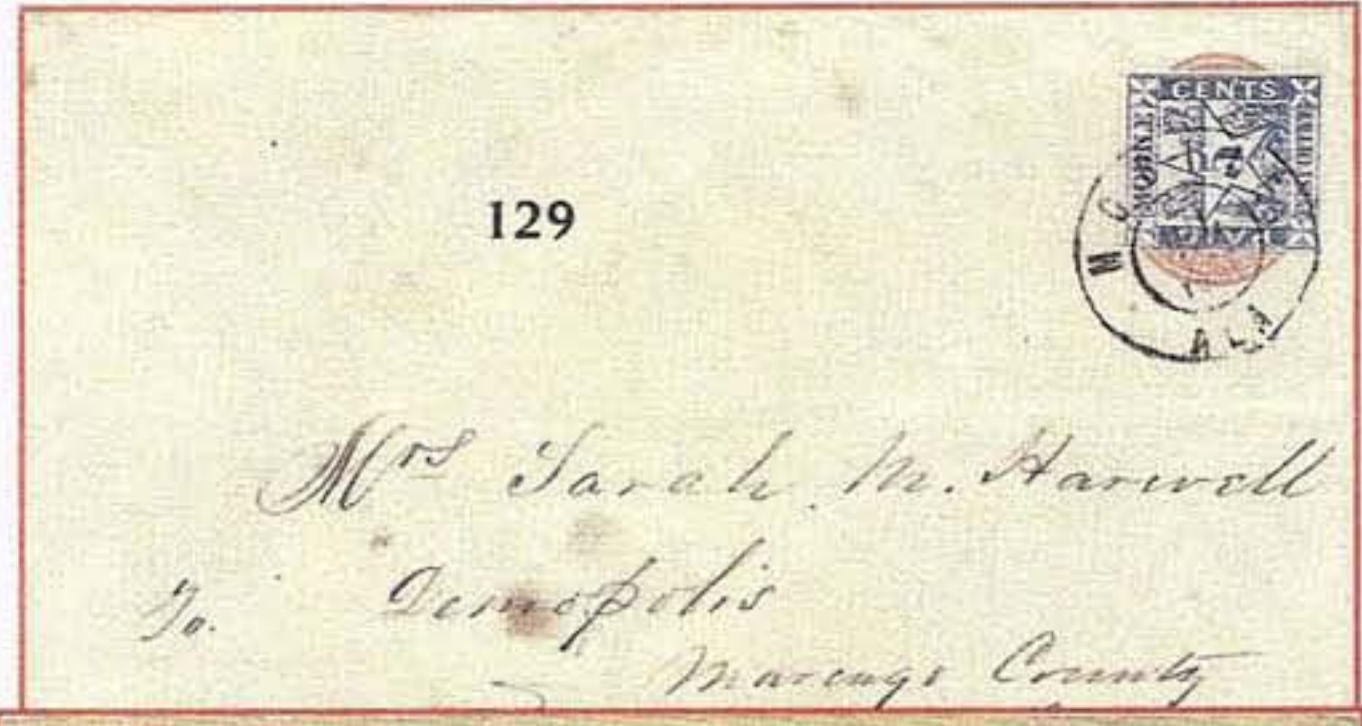 CENTS
MOBILE
5
129
M
ALA
Mrs Sarah M. Harwell
To. Demopolis
Marengo County